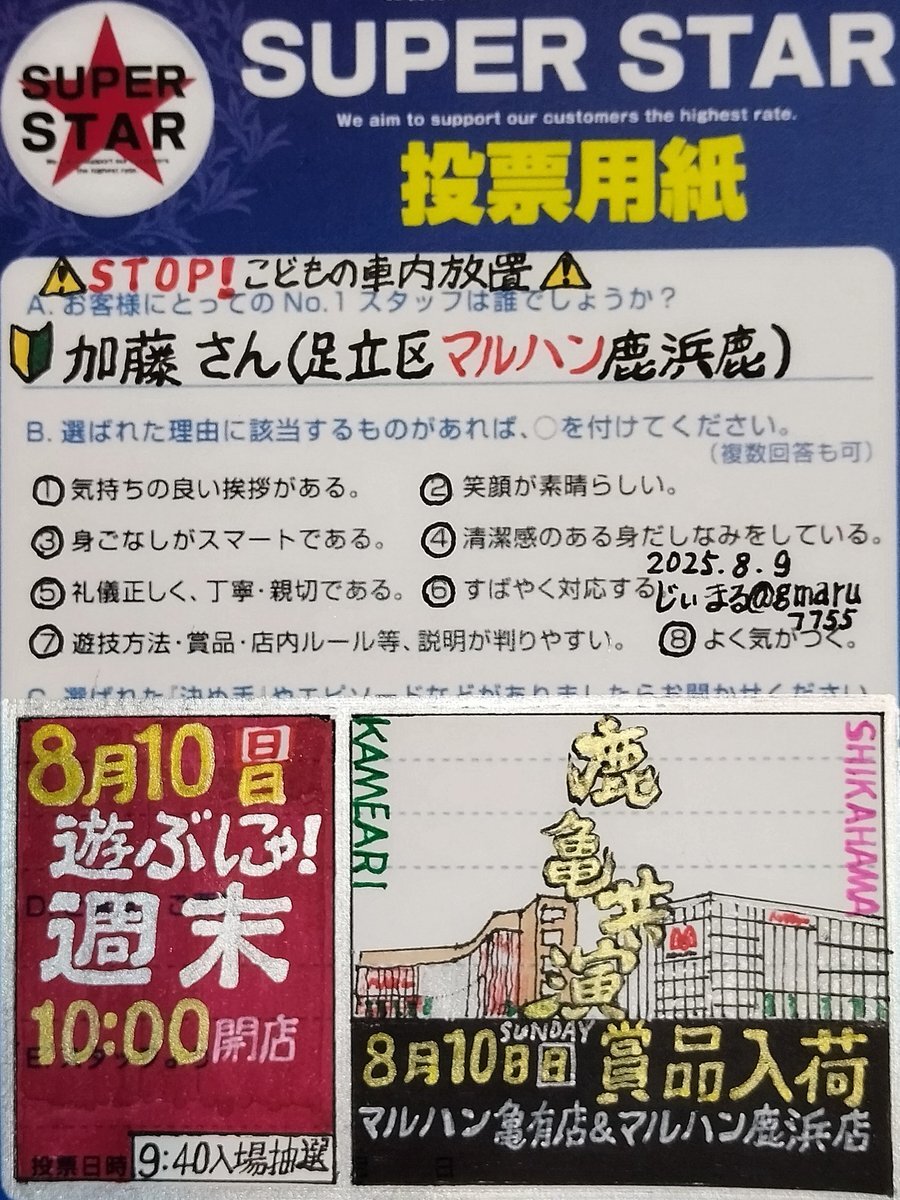 SUPER STAR
SUPER
STAR
We aim to support our customers the highest rate.
投票用紙
STOP!こどもの車内放置
A. お客様にとってのNo.1スタッフは誰でしょうか?
加藤さん(足立区マルハン鹿浜鹿)
B. 選ばれた理由に該当するものがあれば、○を付けてください。
(複数回答も可)
①気持ちの良い挨拶がある。
②笑顔が素晴らしい。
③身ごなしがスマートである。
④清潔感のある身だしなみをしている。
2025.8.9
⑤礼儀正しく、丁寧・親切である。
⑥すばやく対応する
じぃまる@gmaru
7755
⑦遊技方法・賞品・店内ルール等、説明が判りやすい。
⑧よく気がつく。
C. 選ばれた「決め手」やエピソードなどがありましたらお聞かせください
8月10日日
遊ぶにゃ!
週末
10:00開店
投票日時
9:40入場抽選
KAMEARI
SHIKAHAMA
鹿
亀
共
演
SUNDAY
8月10日日賞品入荷
マルハン亀有店&マルハン鹿浜店